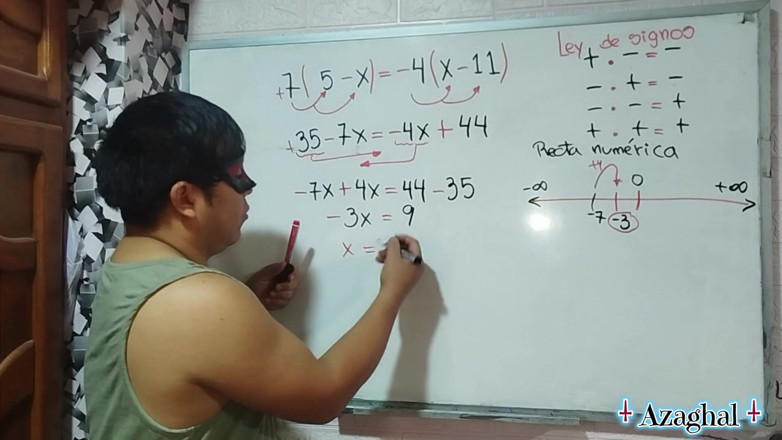 +7(5-x)=-4(x-11)
+35-7x=-4x+44
-7x+4x=44-35
-3x=9
x=
Ley de signos
+ . - = -
- . + = -
- . - = +
+ . + = +
Recta numérica
+4
-∞ 0 +∞
-7 -3
Azaghal